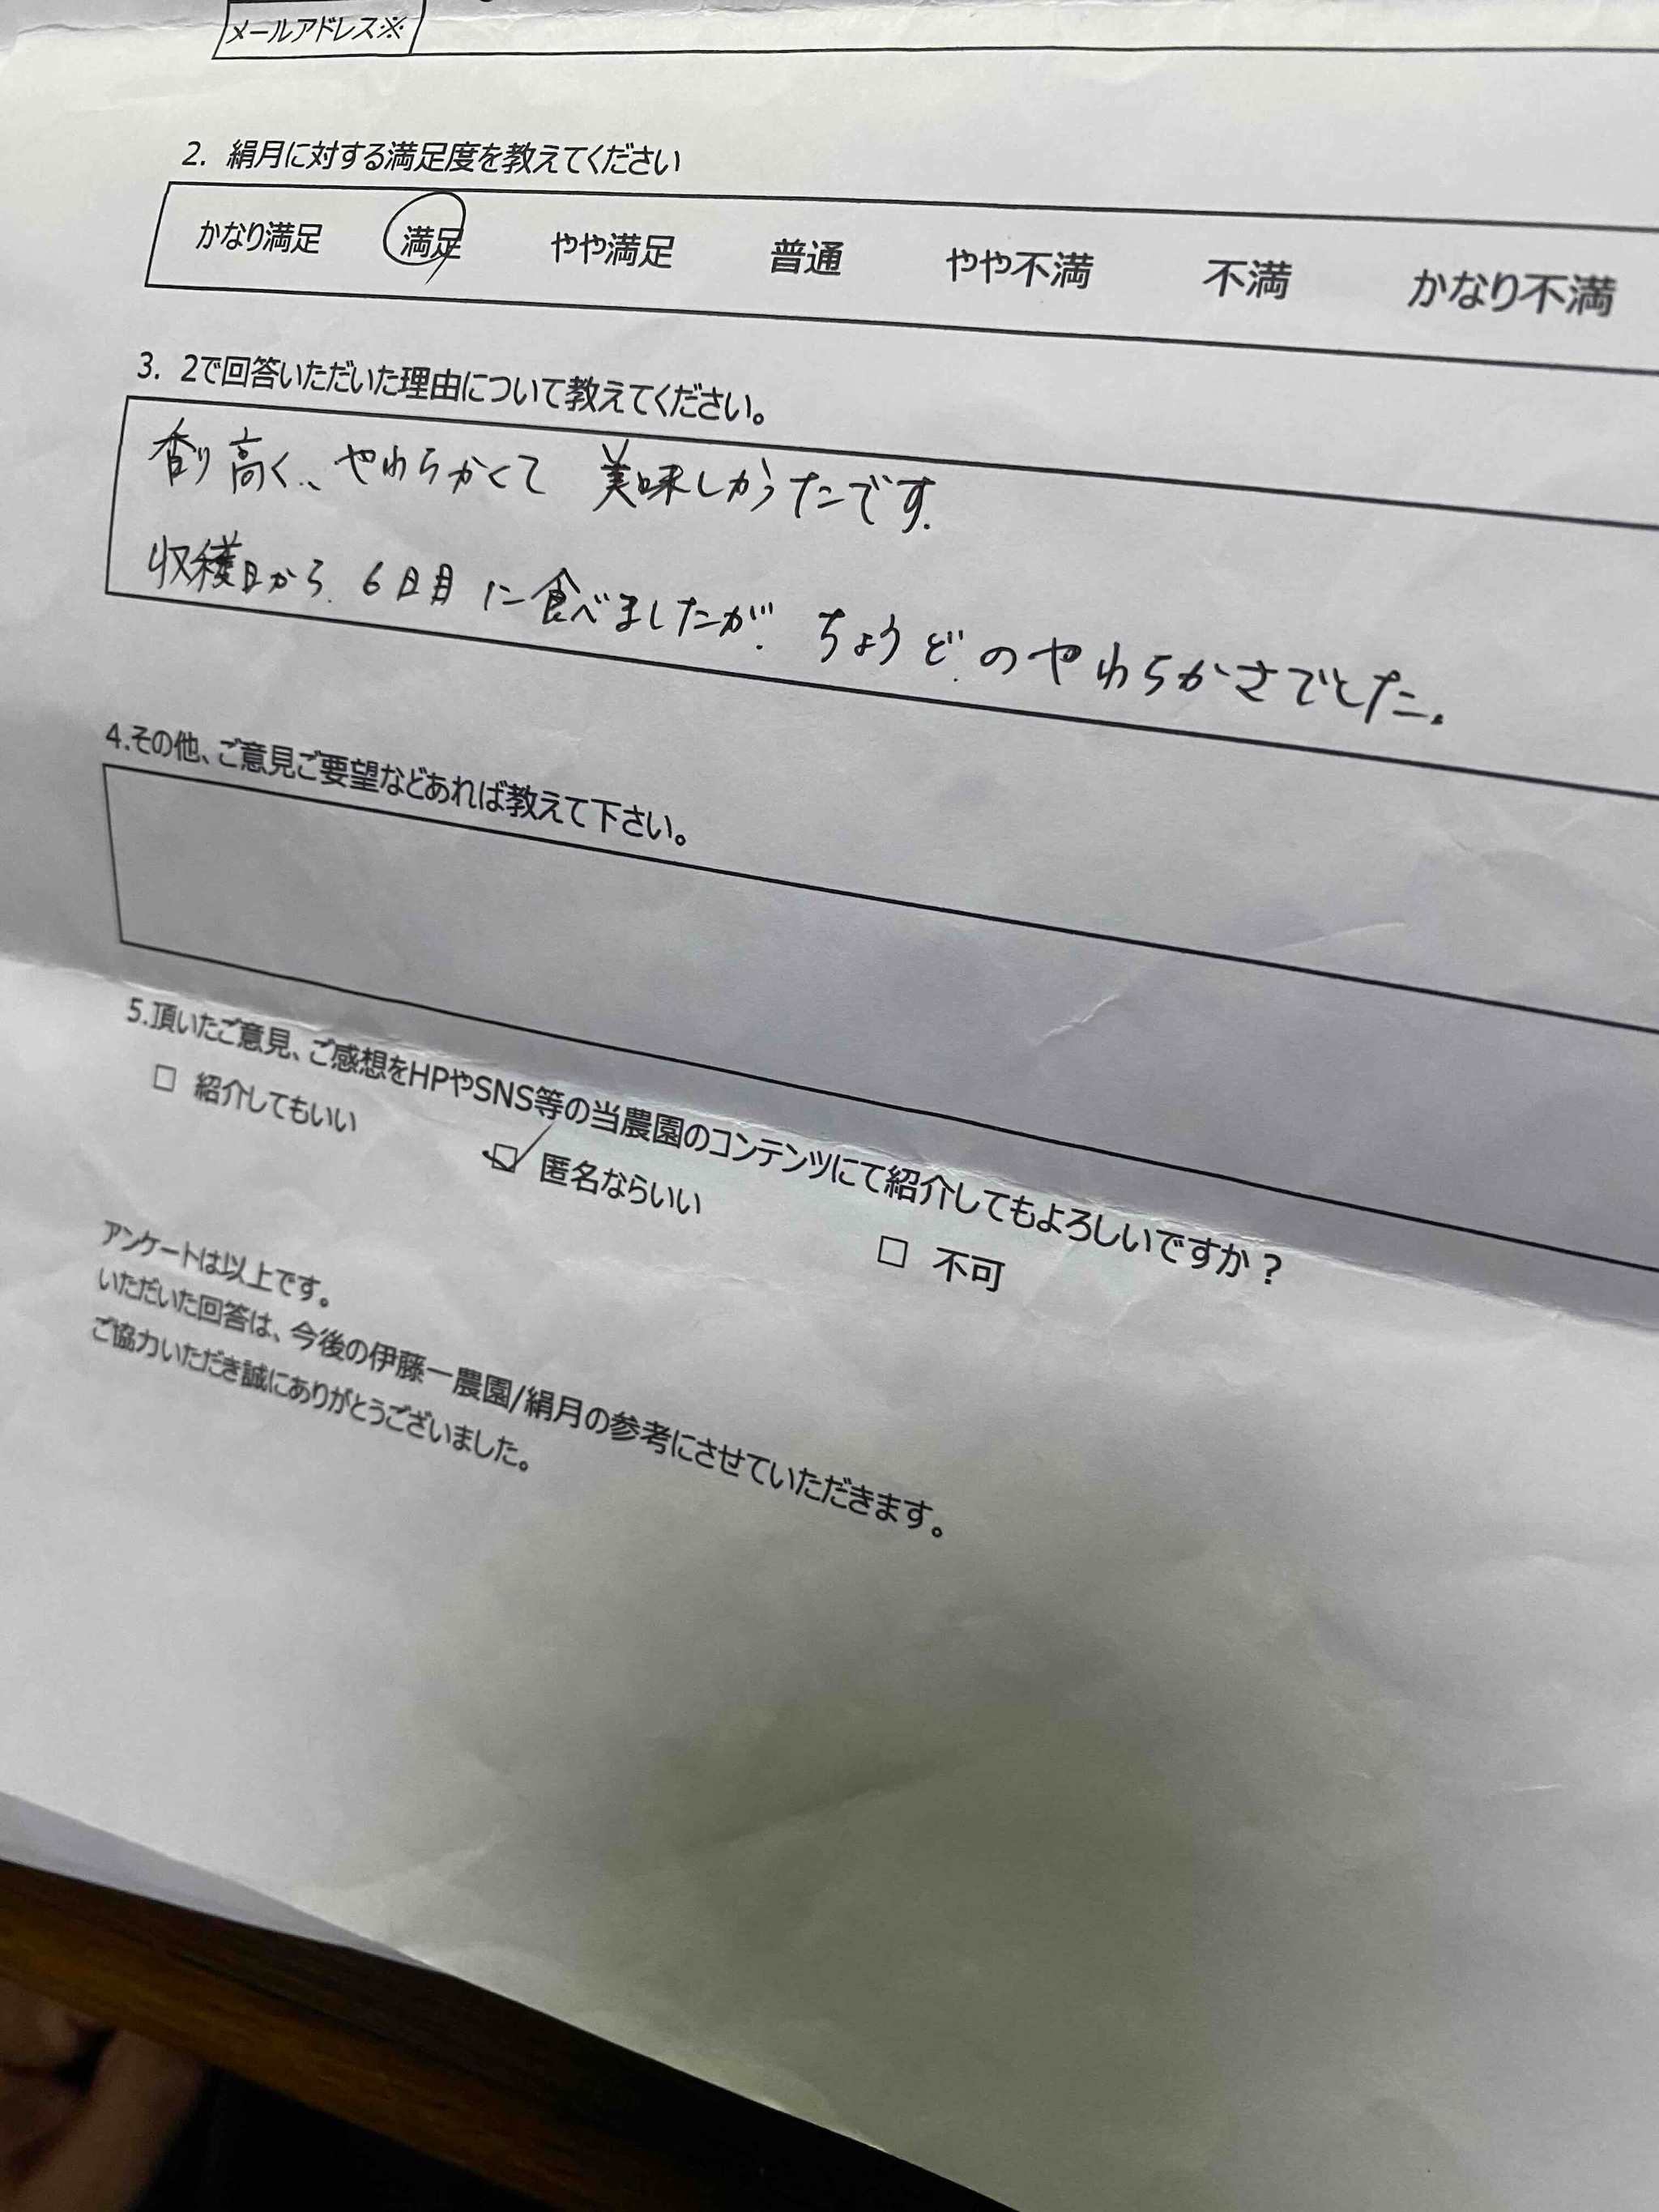 メールアドレス※
2. 絹月に対する満足度を教えてください
かなり満足 満足 やや満足 普通 やや不満 不満 かなり不満
3. 2で回答いただいた理由について教えてください。
香り高く、やわらかくて 美味しかったです.
収穫日から 6日目に食べましたが. ちょうどのやわらかさでした。
4.その他、ご意見ご要望などあれば教えて下さい。
5.頂いたご意見、ご感想をHPやSNS等の当農園のコンテンツにて紹介してもよろしいですか？
□ 紹介してもいい ☑ 匿名ならいい □ 不可
アンケートは以上です。
いただいた回答は、今後の伊藤一農園/絹月の参考にさせていただきます。
ご協力いただき誠にありがとうございました。